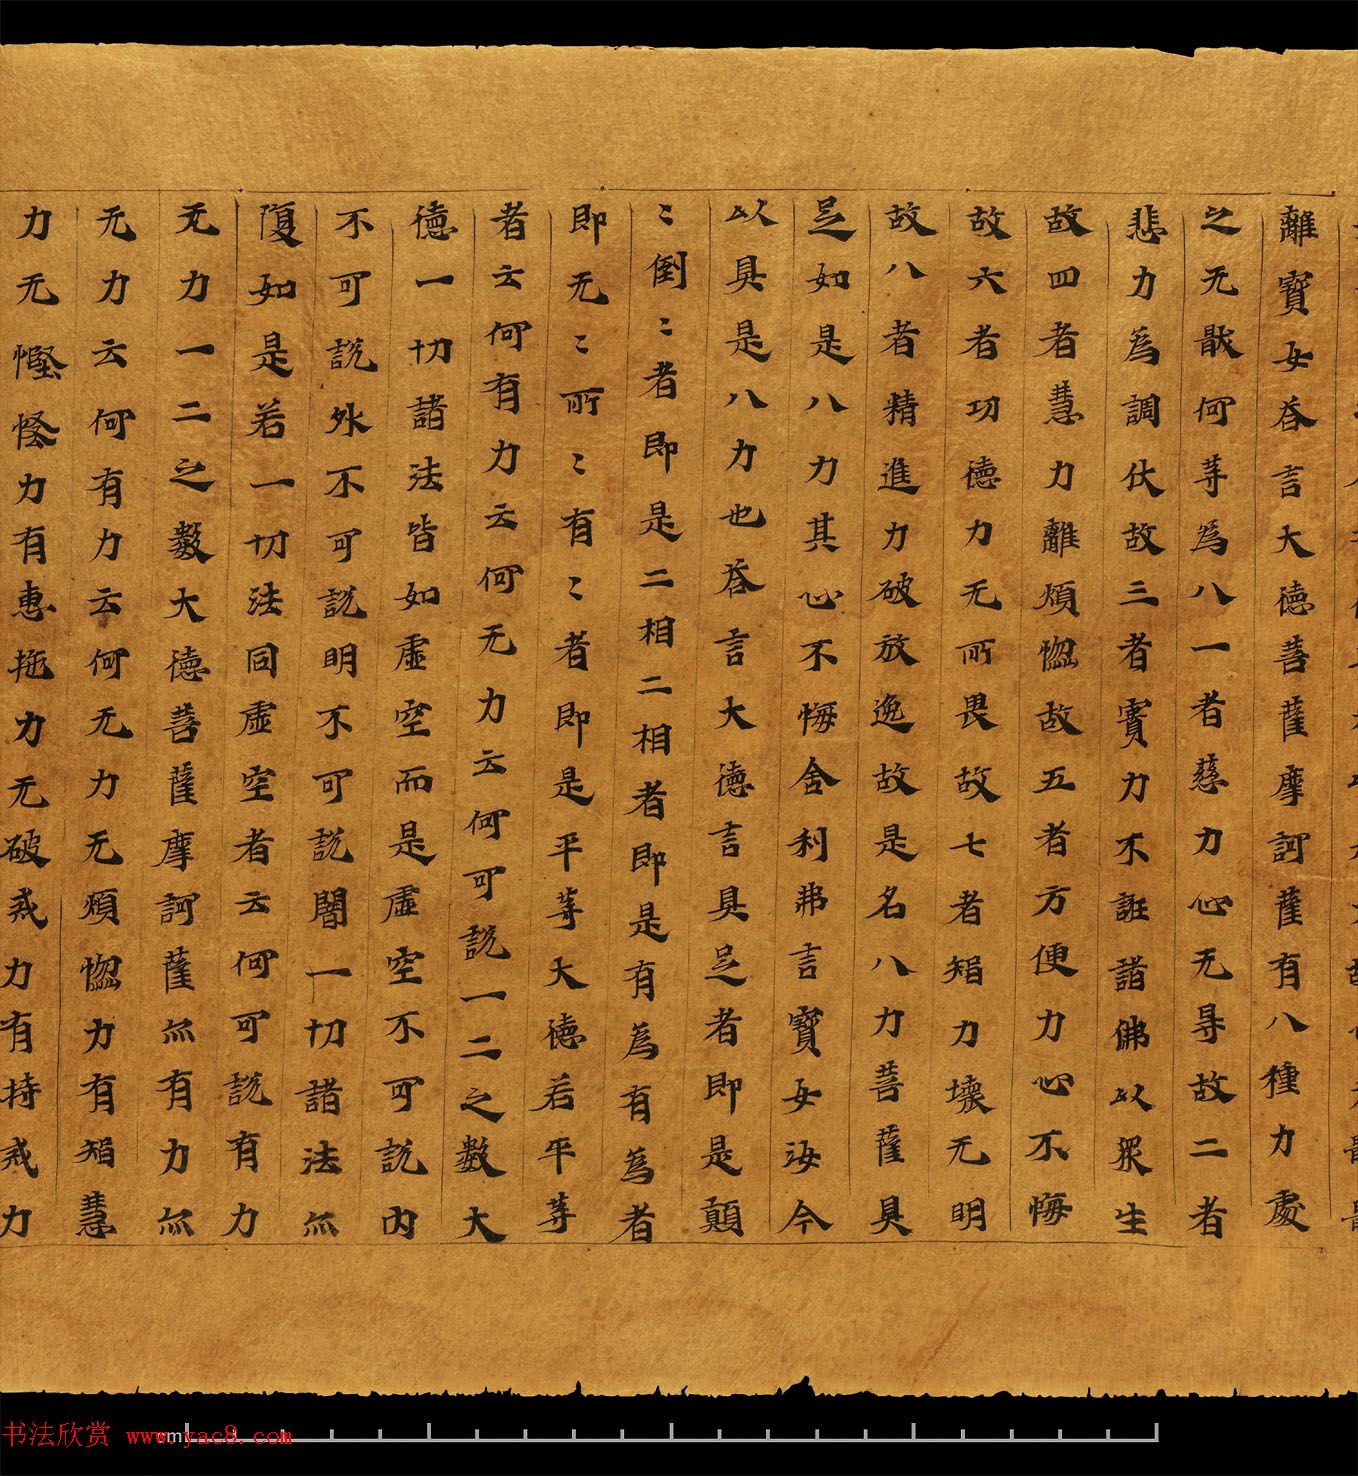 離寶女荅言大德菩薩摩訶薩有八種力處
之无猒何等為八一者慈力心无导故二者
悲力為調伏故三者實力不誑諸佛以眾生
故四者慧力離煩惚故五者方便力心不悔
故六者功德力无所畏故七者智力壞无明
故八者精進力破放逸故是名八力菩薩具
足如是八力其心不悔舍利弗言寶女汝今
以具是八力也荅言大德言具足者即是顛
〻倒〻者即是二相二相者即是有為有為者
即无〻所〻有〻者即是平等大德若平等
者云何有力云何无力云何可說一二之數大
德一切諸法皆如虛空而是虛空不可說內
不可說外不可說明不可說闇一切諸法亦
復如是若一切法同虛空者云何可說有力
无力一二之數大德菩薩摩訶薩亦有力亦
无力云何有力云何无力无煩惚力有智慧
力无慳悋力有惠拖力无破戒力有持戒力
书法欣赏 www.yac8.com
cm